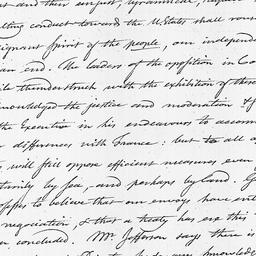 and their unjust, tyrannical,
ulting conduct towards the U. States shall rous
ignant Spirit of the people, our independ
an end. The leaders of the opposition in Co
thunderstruck with the exhibition of these
knowledged the justice and moderation of
the Executive in his endeavours to accomm
differences with France: but to all a
will still oppose efficient measures even
by sea, and perhaps by land. G
opposes to believe that our envoys have ent
negociation, & that a treaty has ere this
concluded. Mr Jefferson says there is
knowledge